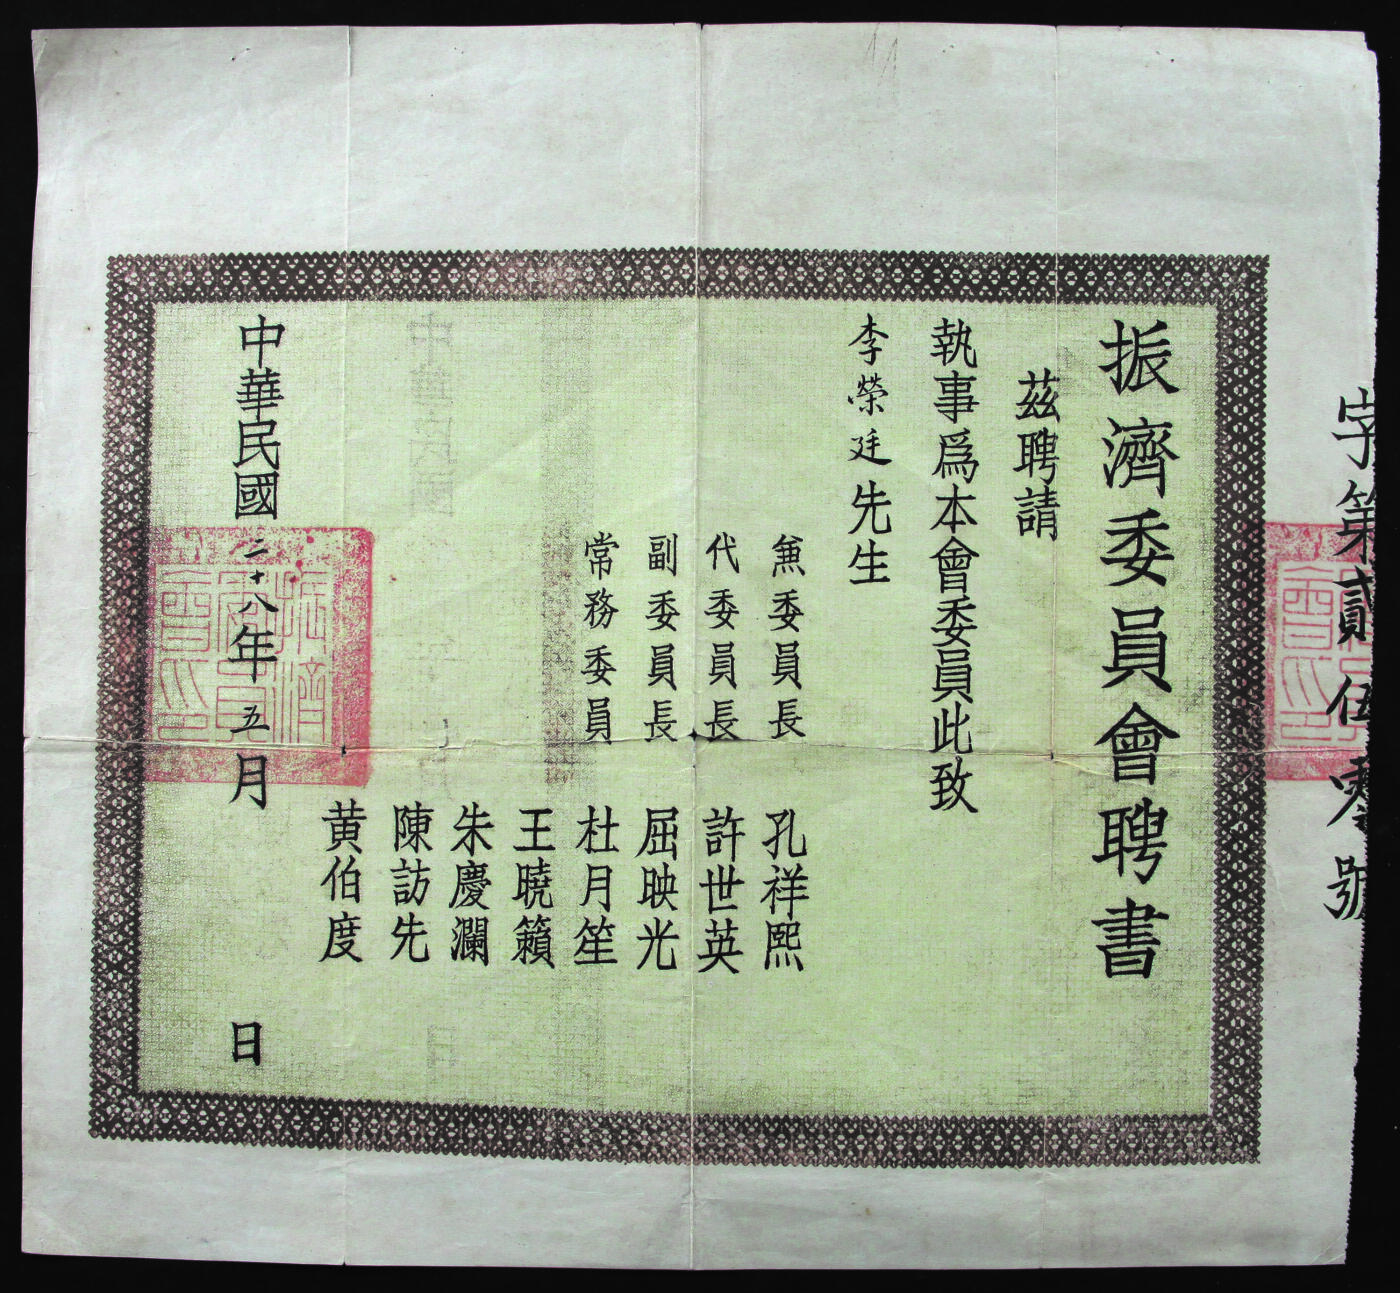 字第貳伍零號
振濟委員會聘書
茲聘請
執事爲本會委員此致
李榮廷先生
兼委員長 孔祥熙
代委員長 許世英
副委員長 屈映光
常務委員 杜月笙
王曉籟
朱慶瀾
陳訪先
黃伯度
中華民國二十八年五月 日
振濟委員會印